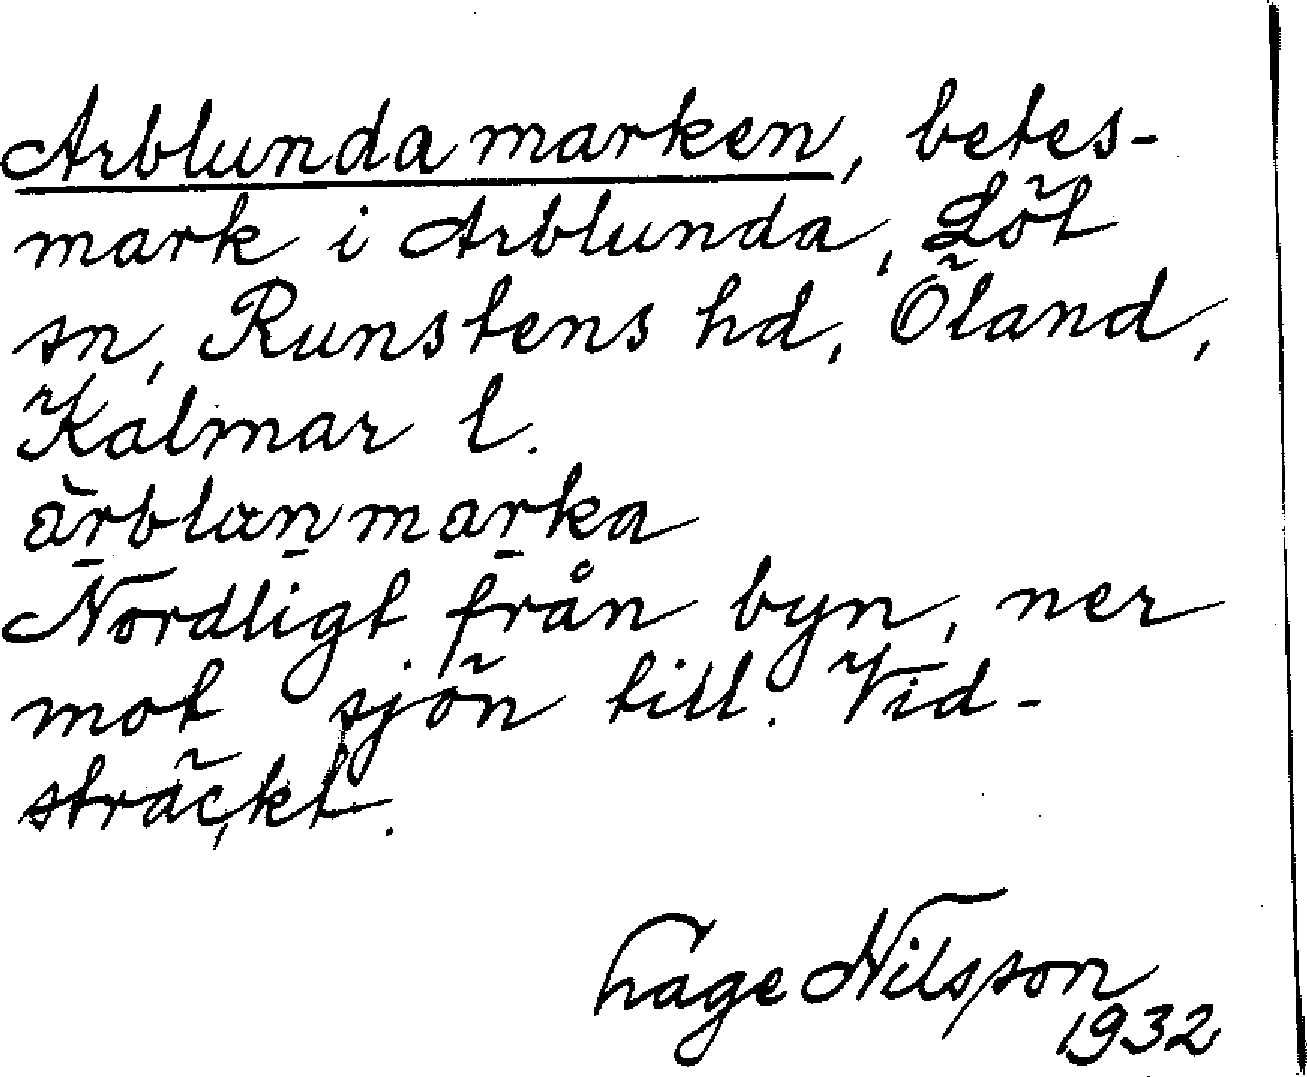 Arblundamarken, betes-
mark i Arblunda, Löt
sn, Runstens hd, Öland,
Kalmar l.
ärblanmarka
Nordligt från byn, ner
mot sjön till. Vid-
sträckt.
Hage Nilsson
1932